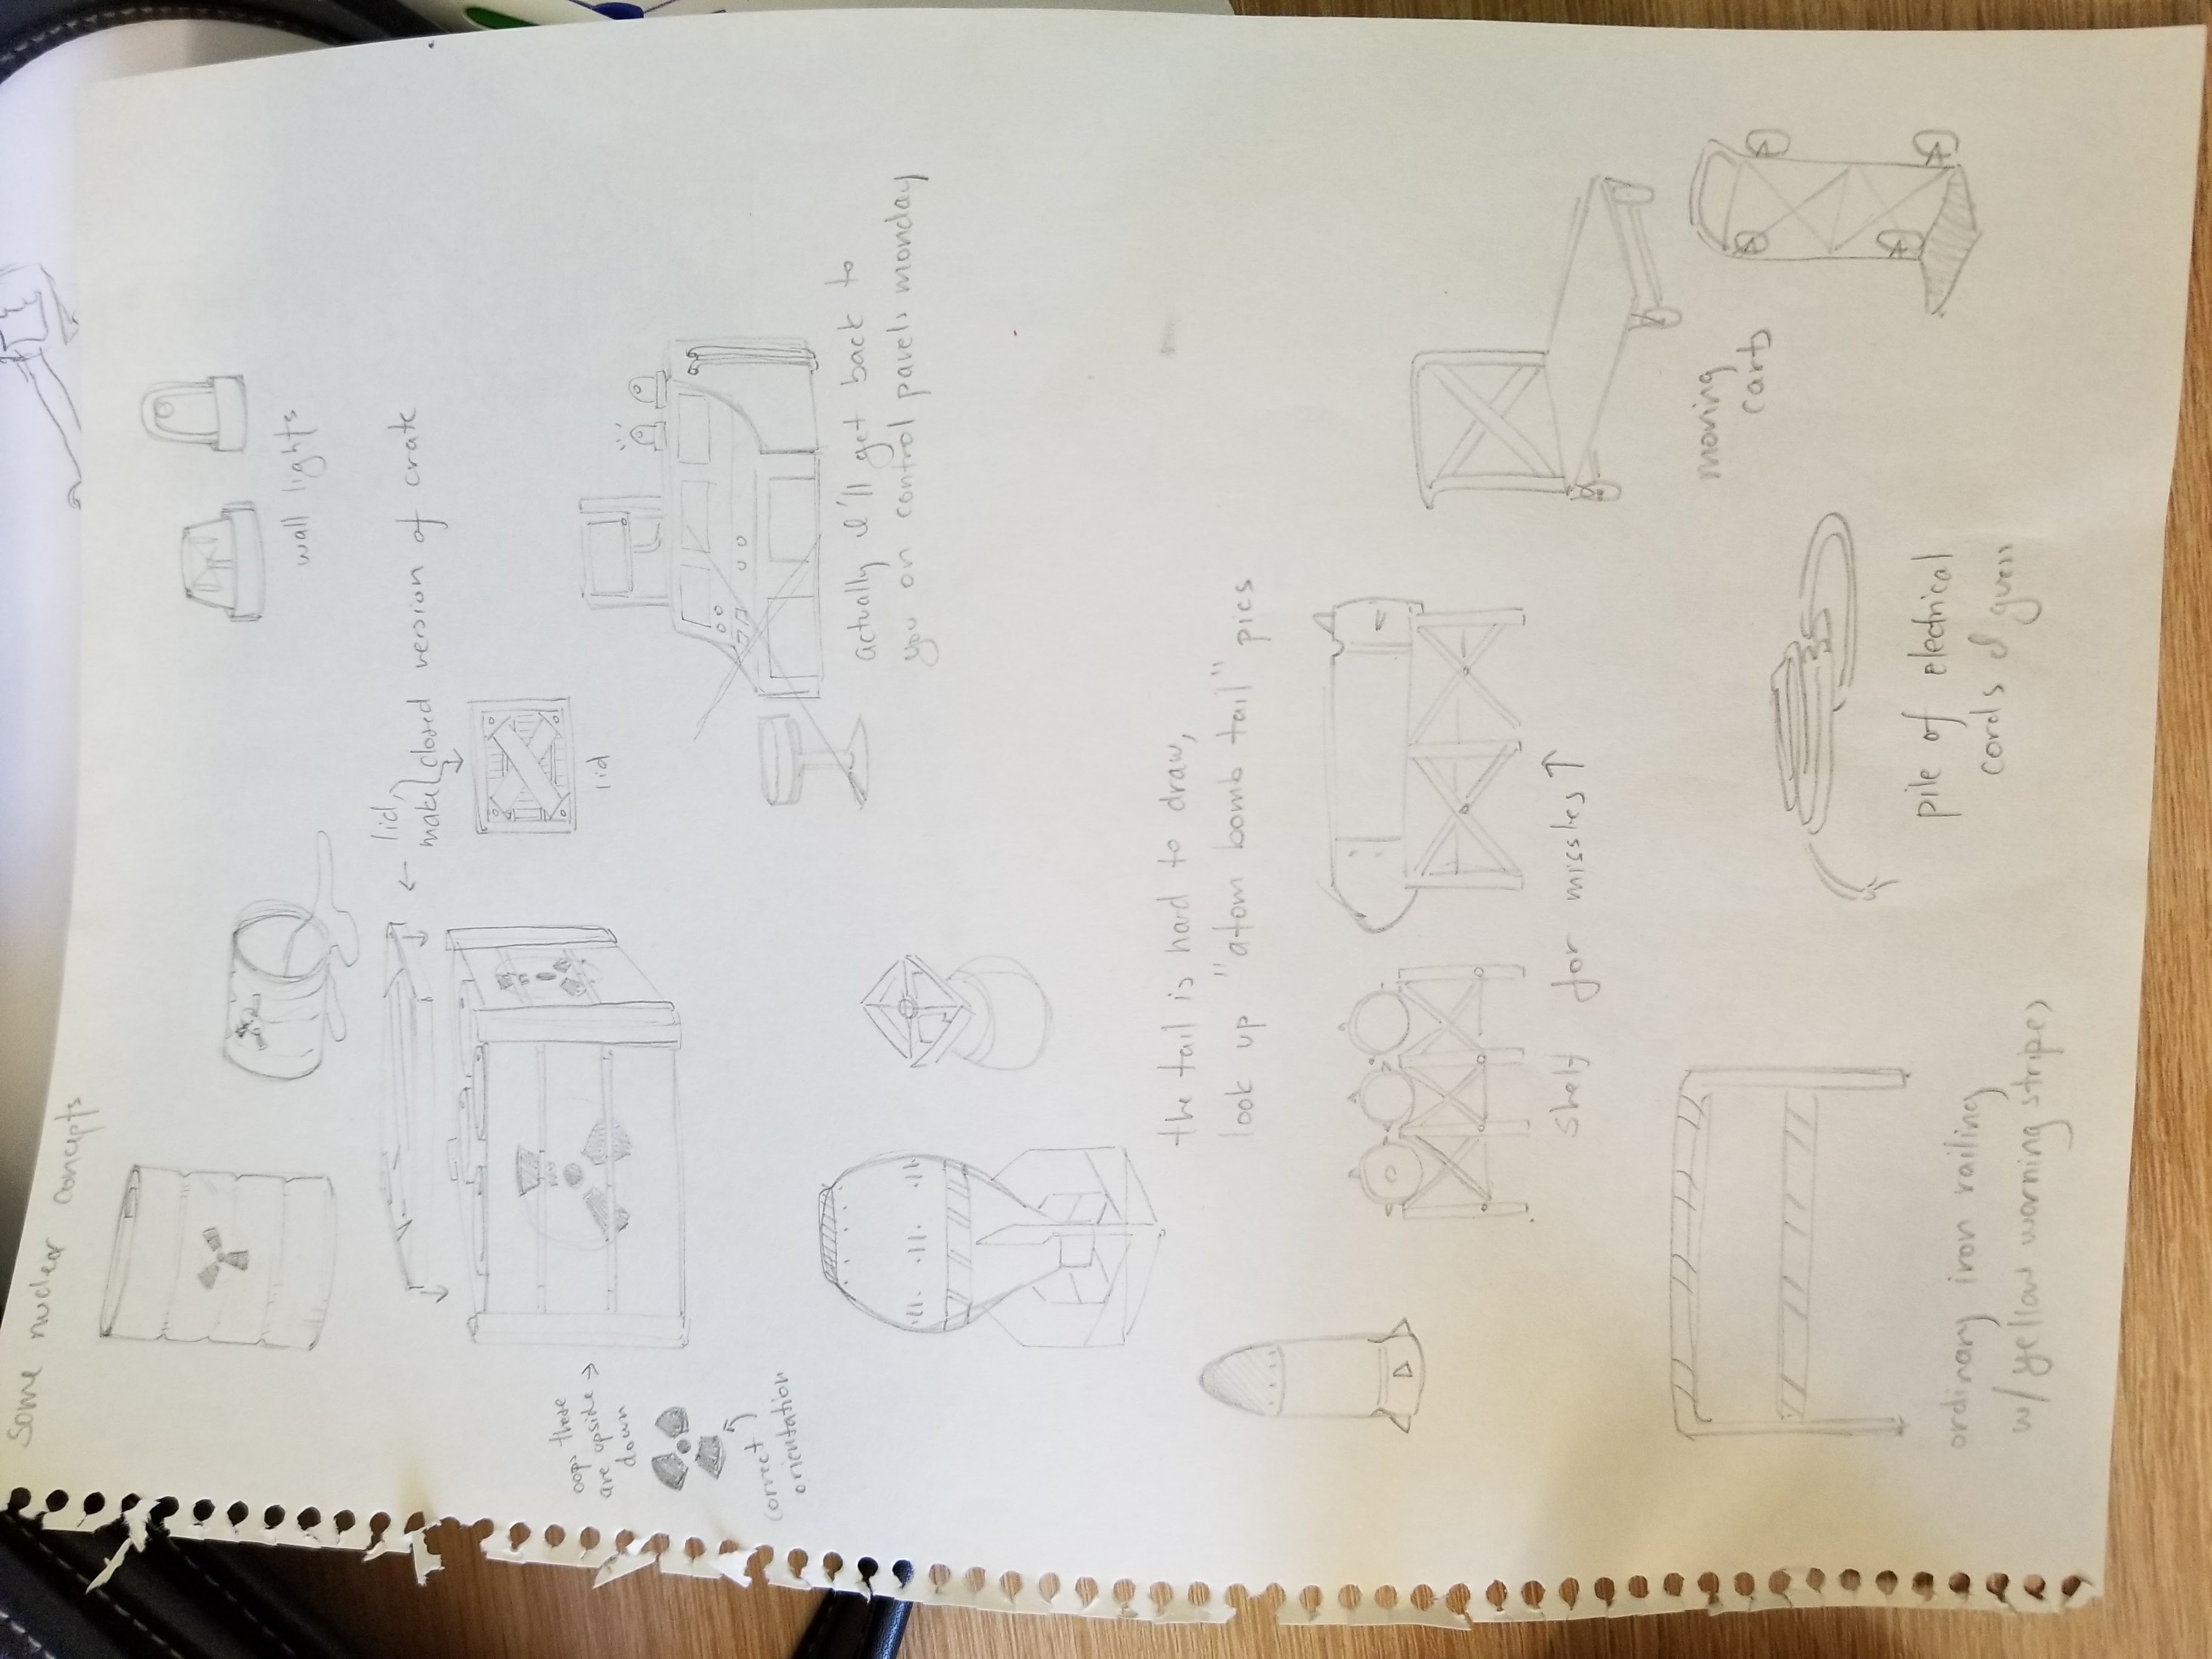 some nuclear concepts
wall lights
← lid,
make closed version of crate
lid
oops these
are upside →
down
correct
orientation
actually I'll get back to
you on control panels monday
the tail is hard to draw,
look up "atom bomb tail" pics
shelf for missles ↑
moving
carts
ordinary iron railing
w/ yellow warning stripes
pile of electrical
cords I guess